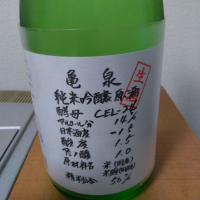 亀泉
生
純米吟醸原酒
酵母 CEL-24
アルコール分 14%
日本酒度
酸度 1.5
アミノ酸 1.0
原材料名 米(国産)
米麹(国産米)
精米歩合 50%